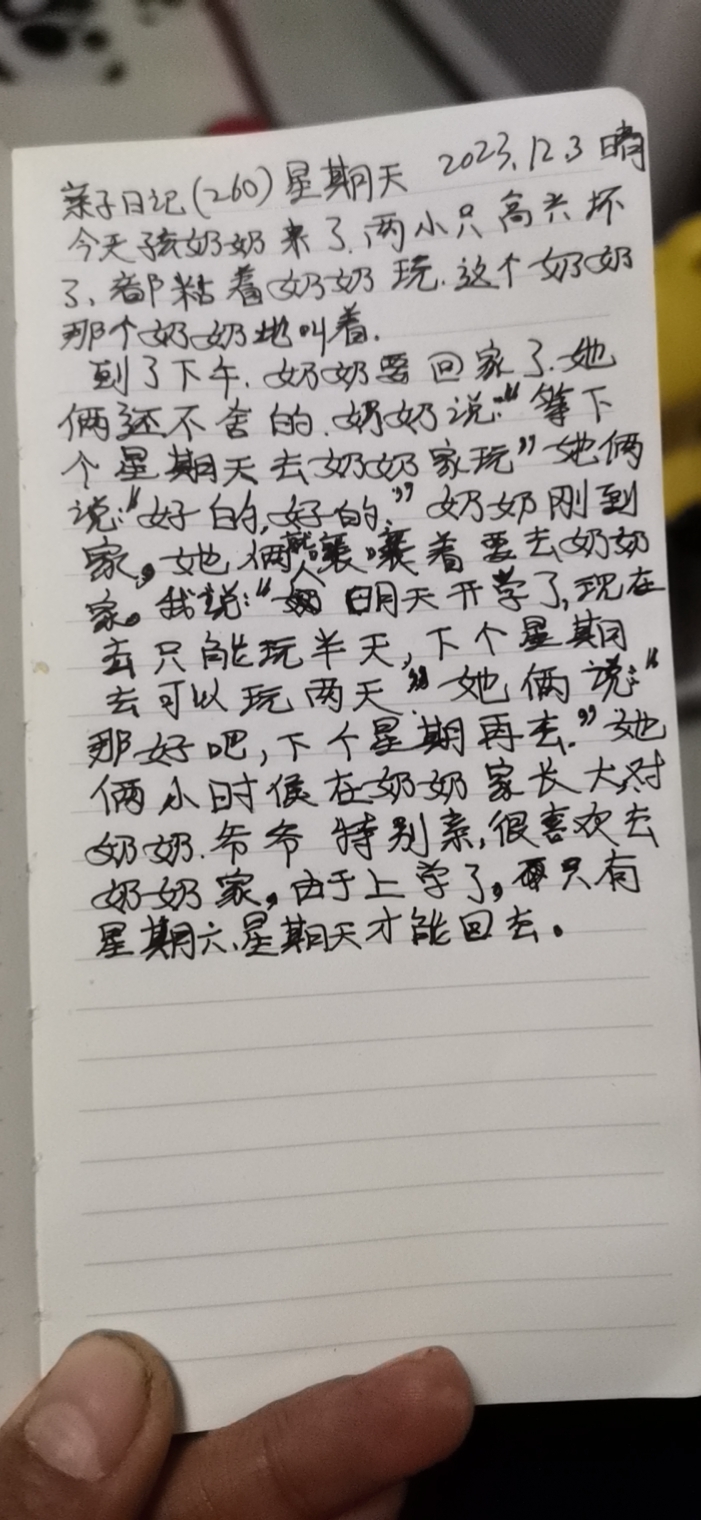 亲子日记(260)星期天 2023.12.3 晴
今天孩奶奶来了.两小只高兴坏
了、都粘着奶奶玩.这个奶奶
那个奶奶地叫着.
到了下午.奶奶要回家了.她
俩还不舍的.奶奶说:“等下
个星期天去奶奶家玩”她俩
说:“好的,好的.”奶奶刚到
家,她俩就嚷嚷着要去奶奶
家。我说:“明天开学了,现在
去只能玩半天,下个星期
去可以玩两天”她俩说:“
那好吧,下个星期再去.”她
俩小时侯在奶奶家长大,对
奶奶.爷爷特别亲,很喜欢去
奶奶家,由于上学了,只有
星期六、星期天才能回去。